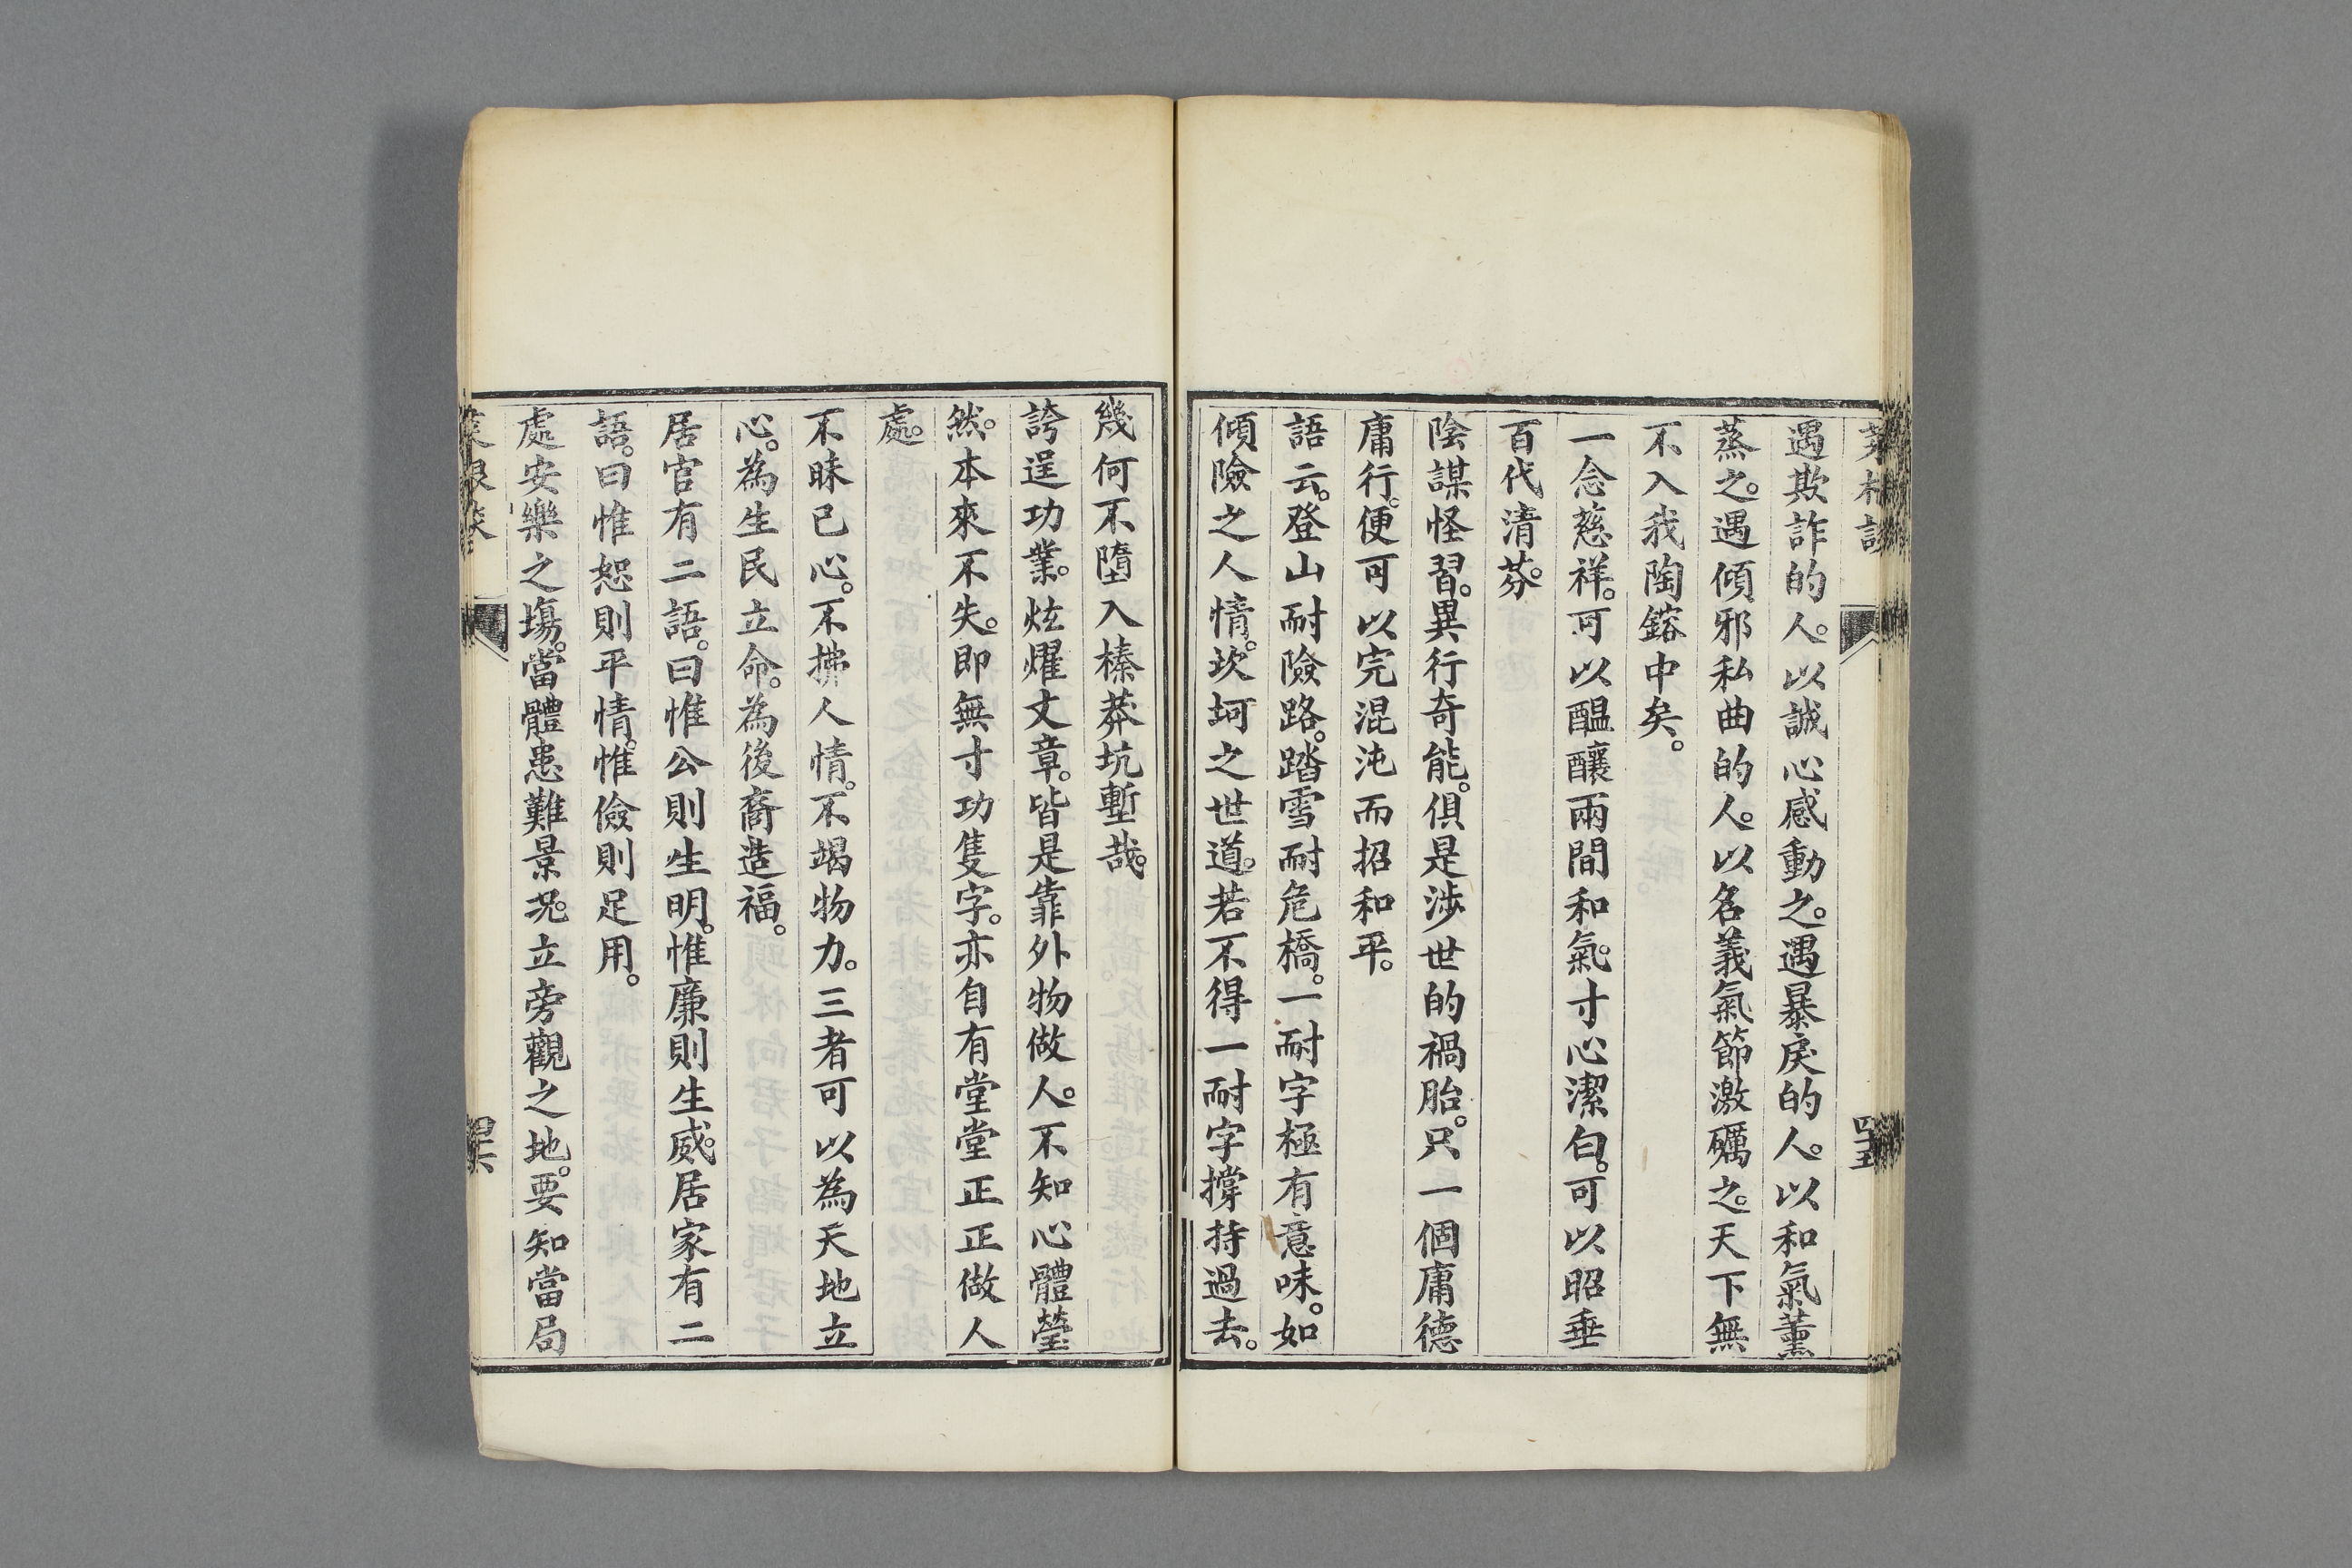 遇欺詐的人。以誠心感動之。遇暴戾的人。以和氣薰
蒸之。遇傾邪私曲的人。以名義氣節激礪之。天下無
不入我陶鎔中矣。
一念慈祥。可以醞釀兩間和氣。寸心潔白。可以昭垂
百代清芬。
陰謀怪習。異行奇能。俱是涉世的禍胎。只一個庸德
庸行。便可以完混沌而招和平。
語云。登山耐險路。踏雪耐危橋。一耐字極有意味。如
傾險之人情。坎坷之世道。若不得一耐字撐持過去。
幾何不墮入榛莽坑塹哉。
誇逞功業。炫燿文章。皆是靠外物做人。不知心體瑩
然。本來不失。即無寸功隻字。亦自有堂堂正正做人
處。
不昧已心。不拂人情。不竭物力。三者可以為天地立
心。為生民立命。為後裔造福。
居官有二語。曰惟公則生明。惟廉則生威。居家有二
語。曰惟恕則平情。惟儉則足用。
處安樂之塲。當體患難景况。立旁觀之地。要知當局